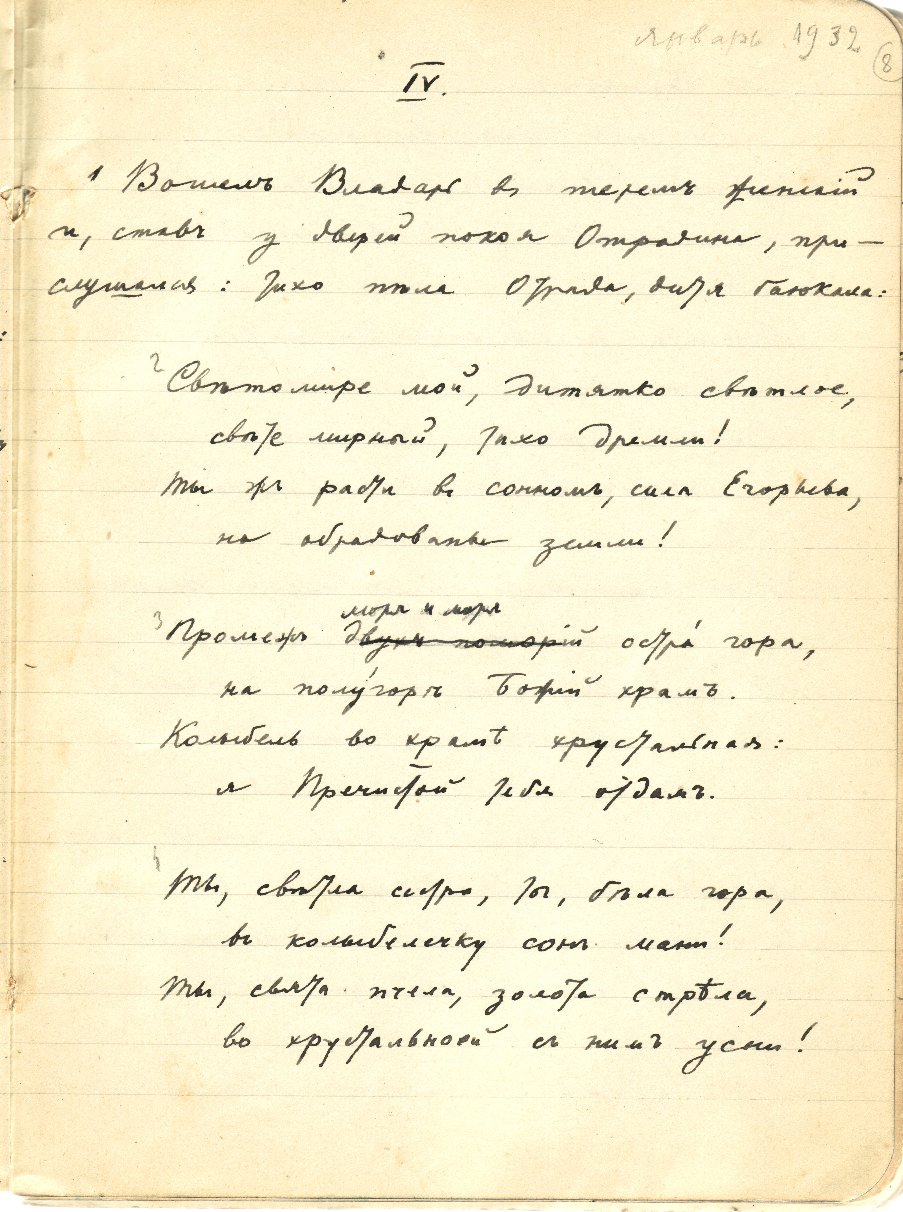 январь 1932
8
IV.
1 Вошелъ Владарь въ теремъ женскій
и, ставъ у дверей покоя Отрадина, при-
слушался: тихо пѣла Отрада, дитя баюкала:
2 Свѣтомире мой, дитятко свѣтлое,
свѣте мирный, тихо дремли!
Ты жъ расти въ сонномъ, сила Егорьева,
на обрадованье земли!
моря и моря
3 Промежъ двухъ поморій остра́ гора,
на полу́горѣ Божій храмъ.
Колыбель во храмѣ хрустальная:
я Пречистой тебя отдамъ.
Ты, свѣтла сестра, ты, бѣла гора,
въ колыбелечку сонъ мани!
Ты, свята пчела, золота стрѣла,
во хрустальноей съ нимъ усни!